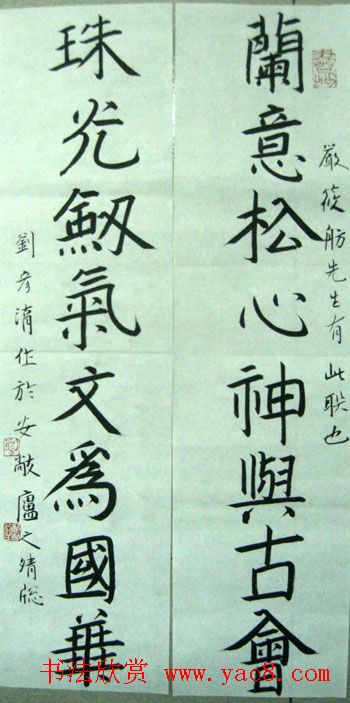 蘭意松心神與古會
嚴筱舫先生有此联也
珠光劔氣文爲國華
劉彦湝作於安敲廬之晴窓
书法欣赏 www.yac8.com